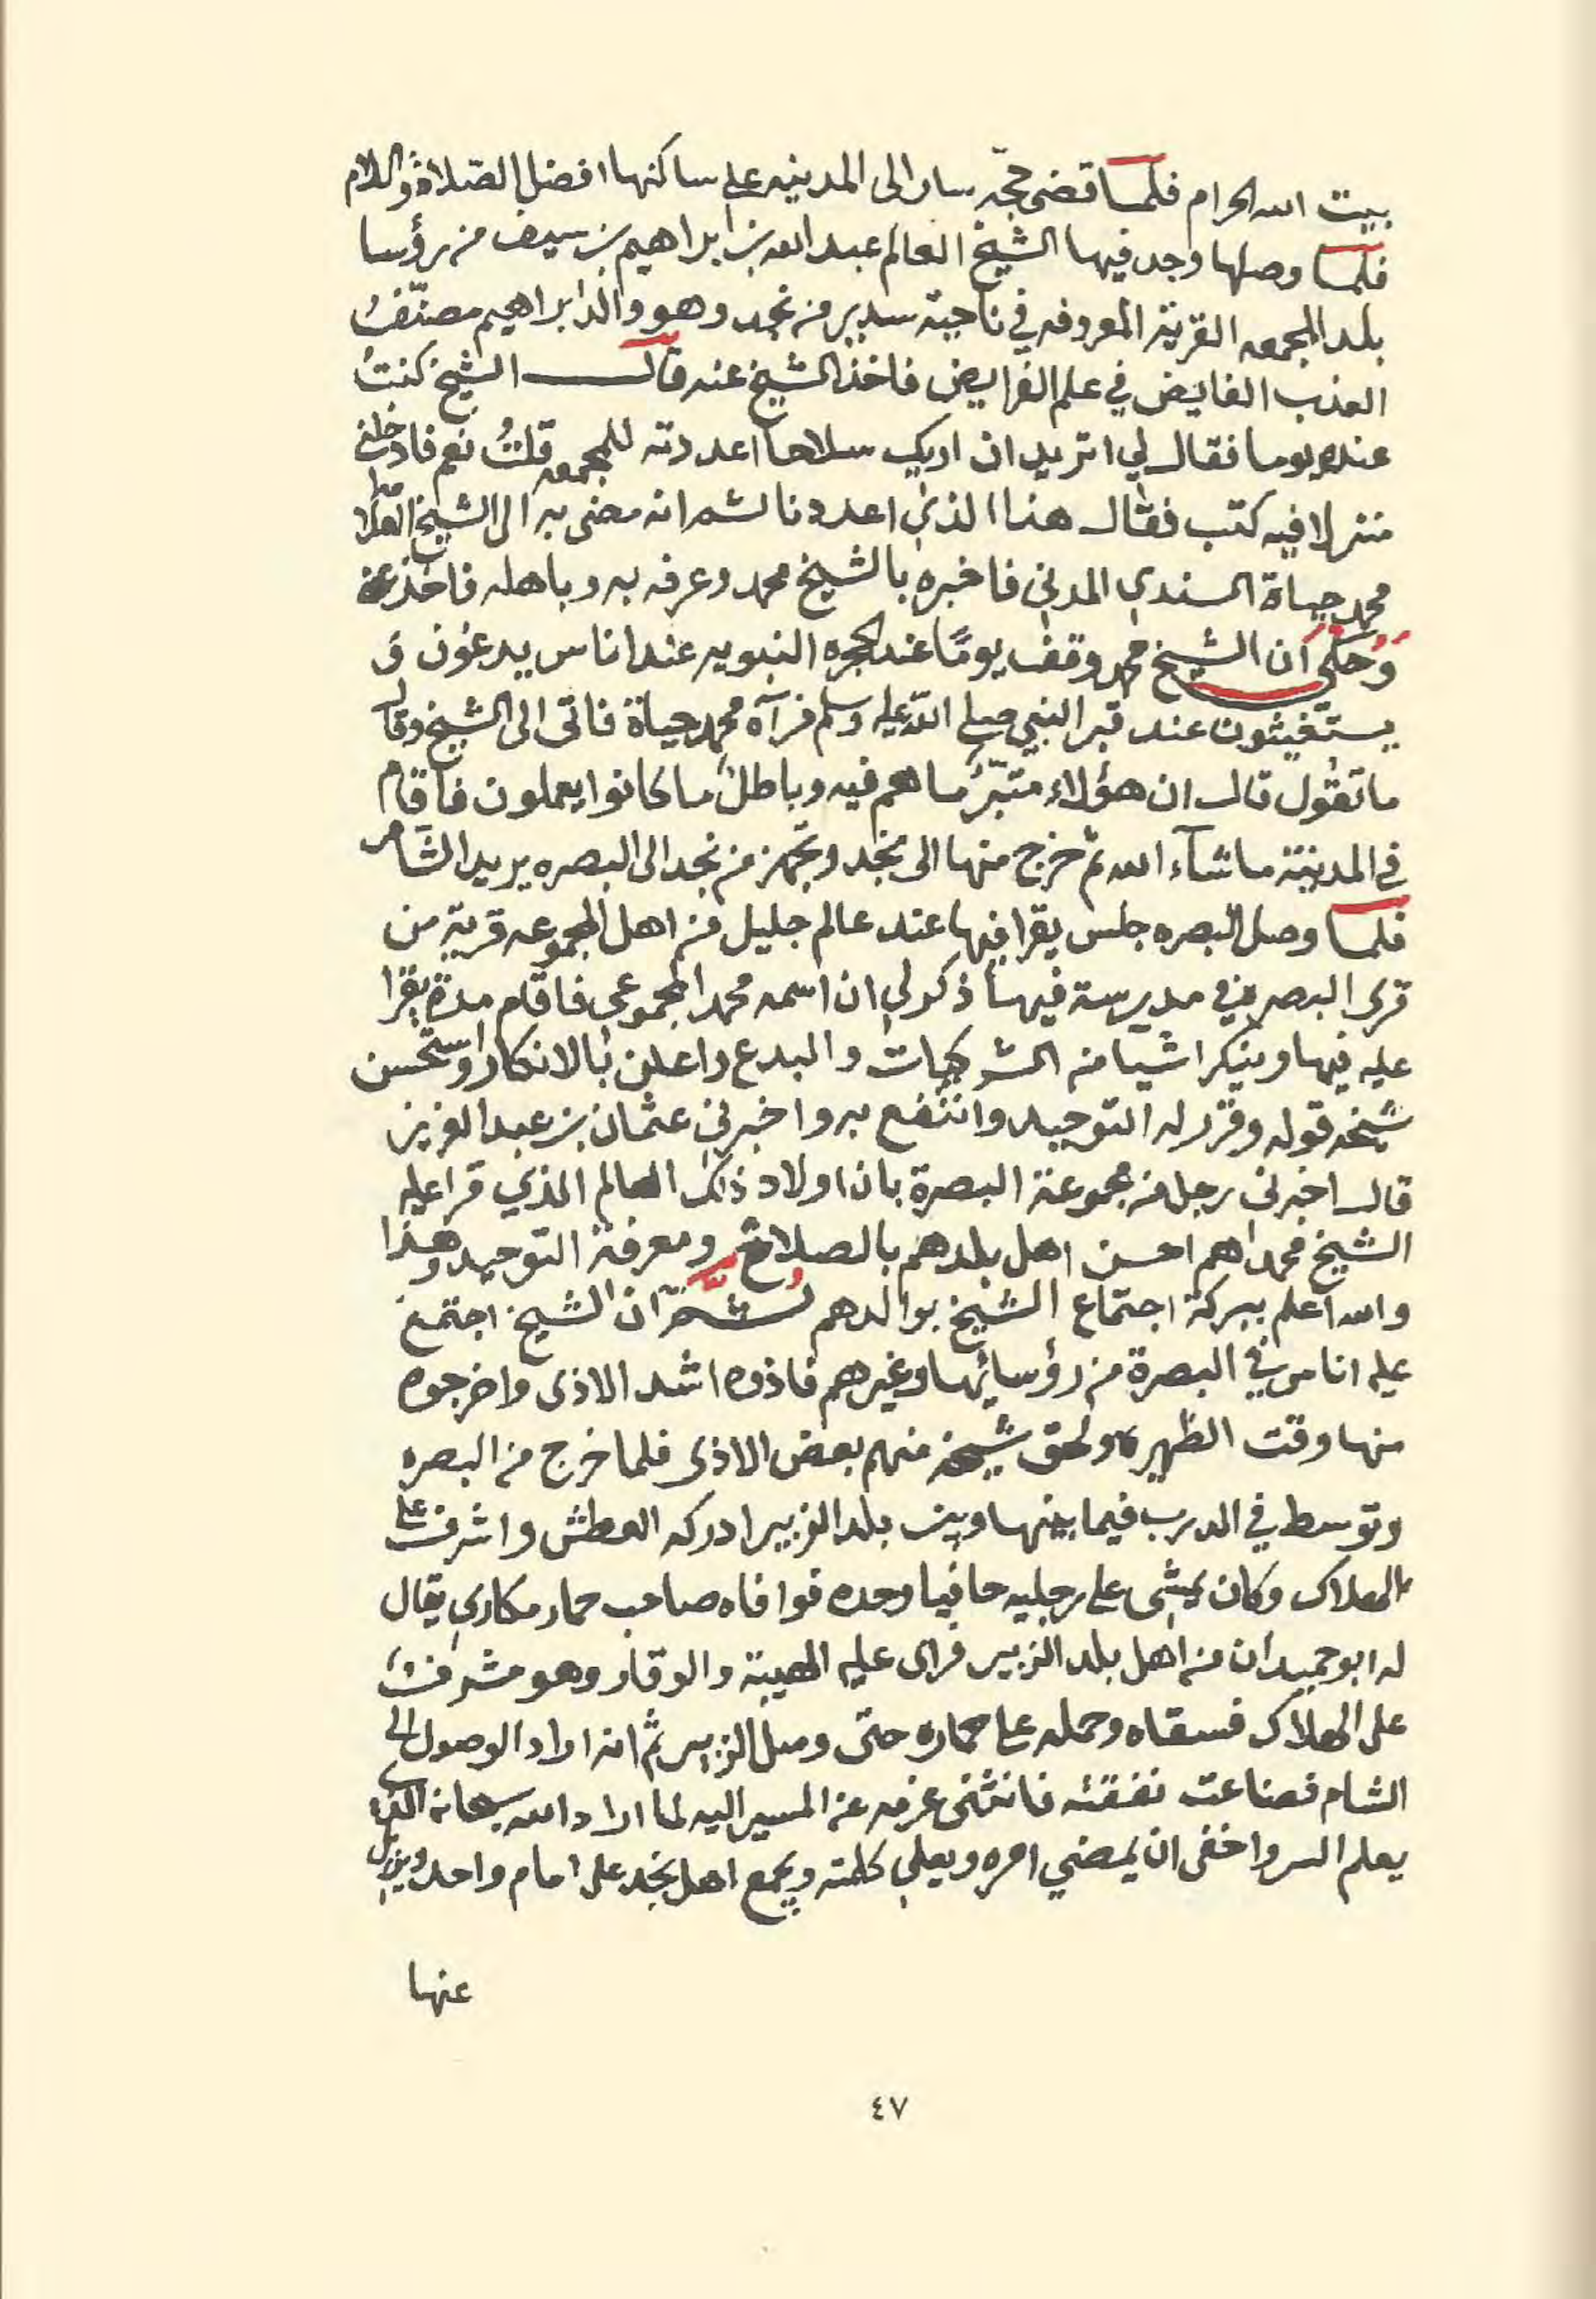 بيت الله الحرام فلما قضى حجّه سار الى المدينه على ساكنها افضل الصّلاة والسلام
فلما وصلها وجد فيها الشيخ العالم عبد الله بن ابراهيم بن سيف من رؤسا
بلد المجمعه القرية المعروفه في ناحية سدير من نجد وهو والد ابراهيم مصنّفُ
العذب الفايض في علم الفرايض فاخذ الشيخ عنه قال الشيخ كنتُ
عنده يوما فقال لي اتريد ان اريك سلاحا اعددته للمجمعه قلتُ نعم فادخلني
منزلا فيه كتب فقال هذا الذي اعددنا لها ثم انه مضى به الى الشيخ العلامه
محمد حياة السندي المدني فاخبره بالشيخ محمد وعرفه به وباهله فاخذ عنه
وَحُكي أن الشيخ محمد وقف يومًا عند الحجره النبويه عند اناس يدعُون وَ
يستغيثون عند قبر النبي صلى الله عليه وسلم فرآه محمد حياة فاتى الى الشيخ وقال
ما تقول قال ان هؤلاء متبّرٌ ما هم فيه وباطلٌ ما كانوا يعملون فاقام
في المدينة ماشآء الله ثم خرج منها الى نجد وتجهز من نجد الى البصره يريد الشام
فلما وصل البصره جلس يقرا فيها عند عالم جليل من اهل المجموعه قرية من
قرى البصره في مدرسة فيها ذكر لي ان اسمه محمد المجموعي فاقام مدة يقرا
عليه فيها وينكر اشيا من الشركيات والبدع واعلن بالانكار واستحسن
شيخه قوله وقرر له التوحيد وانتفع به واخبرني عثمان بن عبد العزيز
قال اخبرني رجل من مجموعة البصرة بان اولاد ذلك العالم الذي قرا عليه
الشيخ محمد اهم احسن اهل بلدهم بالصلاح ومعرفة التوحيد وهذا
والله اعلم ببركة اجتماع الشيخ بوالدهم ثُمَّ آن الشيخ اجتمع
عليه اناس في البصرة من رؤسائها وغيرهم فاذوه اشد الاذى واخرجوه
منها وقت الظهيره ولحق شيخه منهم بعض الاذى فلما خرج من البصره
وتوسط في الدرب فيما بينها وبين بلد الزبير ادركه العطش واشرف على
الهلاك وكان يمشى على رجليه حافيا وحده فوافاه صاحب حمار مكاري يقال
له ابو حميدان من اهل بلد الزبير فراى عليه الهيبة والوقار وهو مشرفٌ
على الهلاك فسقاه وحمله على حماره حتى وصل الزبير ثم انه اراد الوصول الى
الشام فضاعت نفقته فانثنى عزمه عن المسير اليه لما اراد الله سبحانه الذي
يعلم السر واخفى ان يمضي امره ويعلي كلمته ويجمع اهل نجد على امام واحد ويزيل
عنها
٤٧